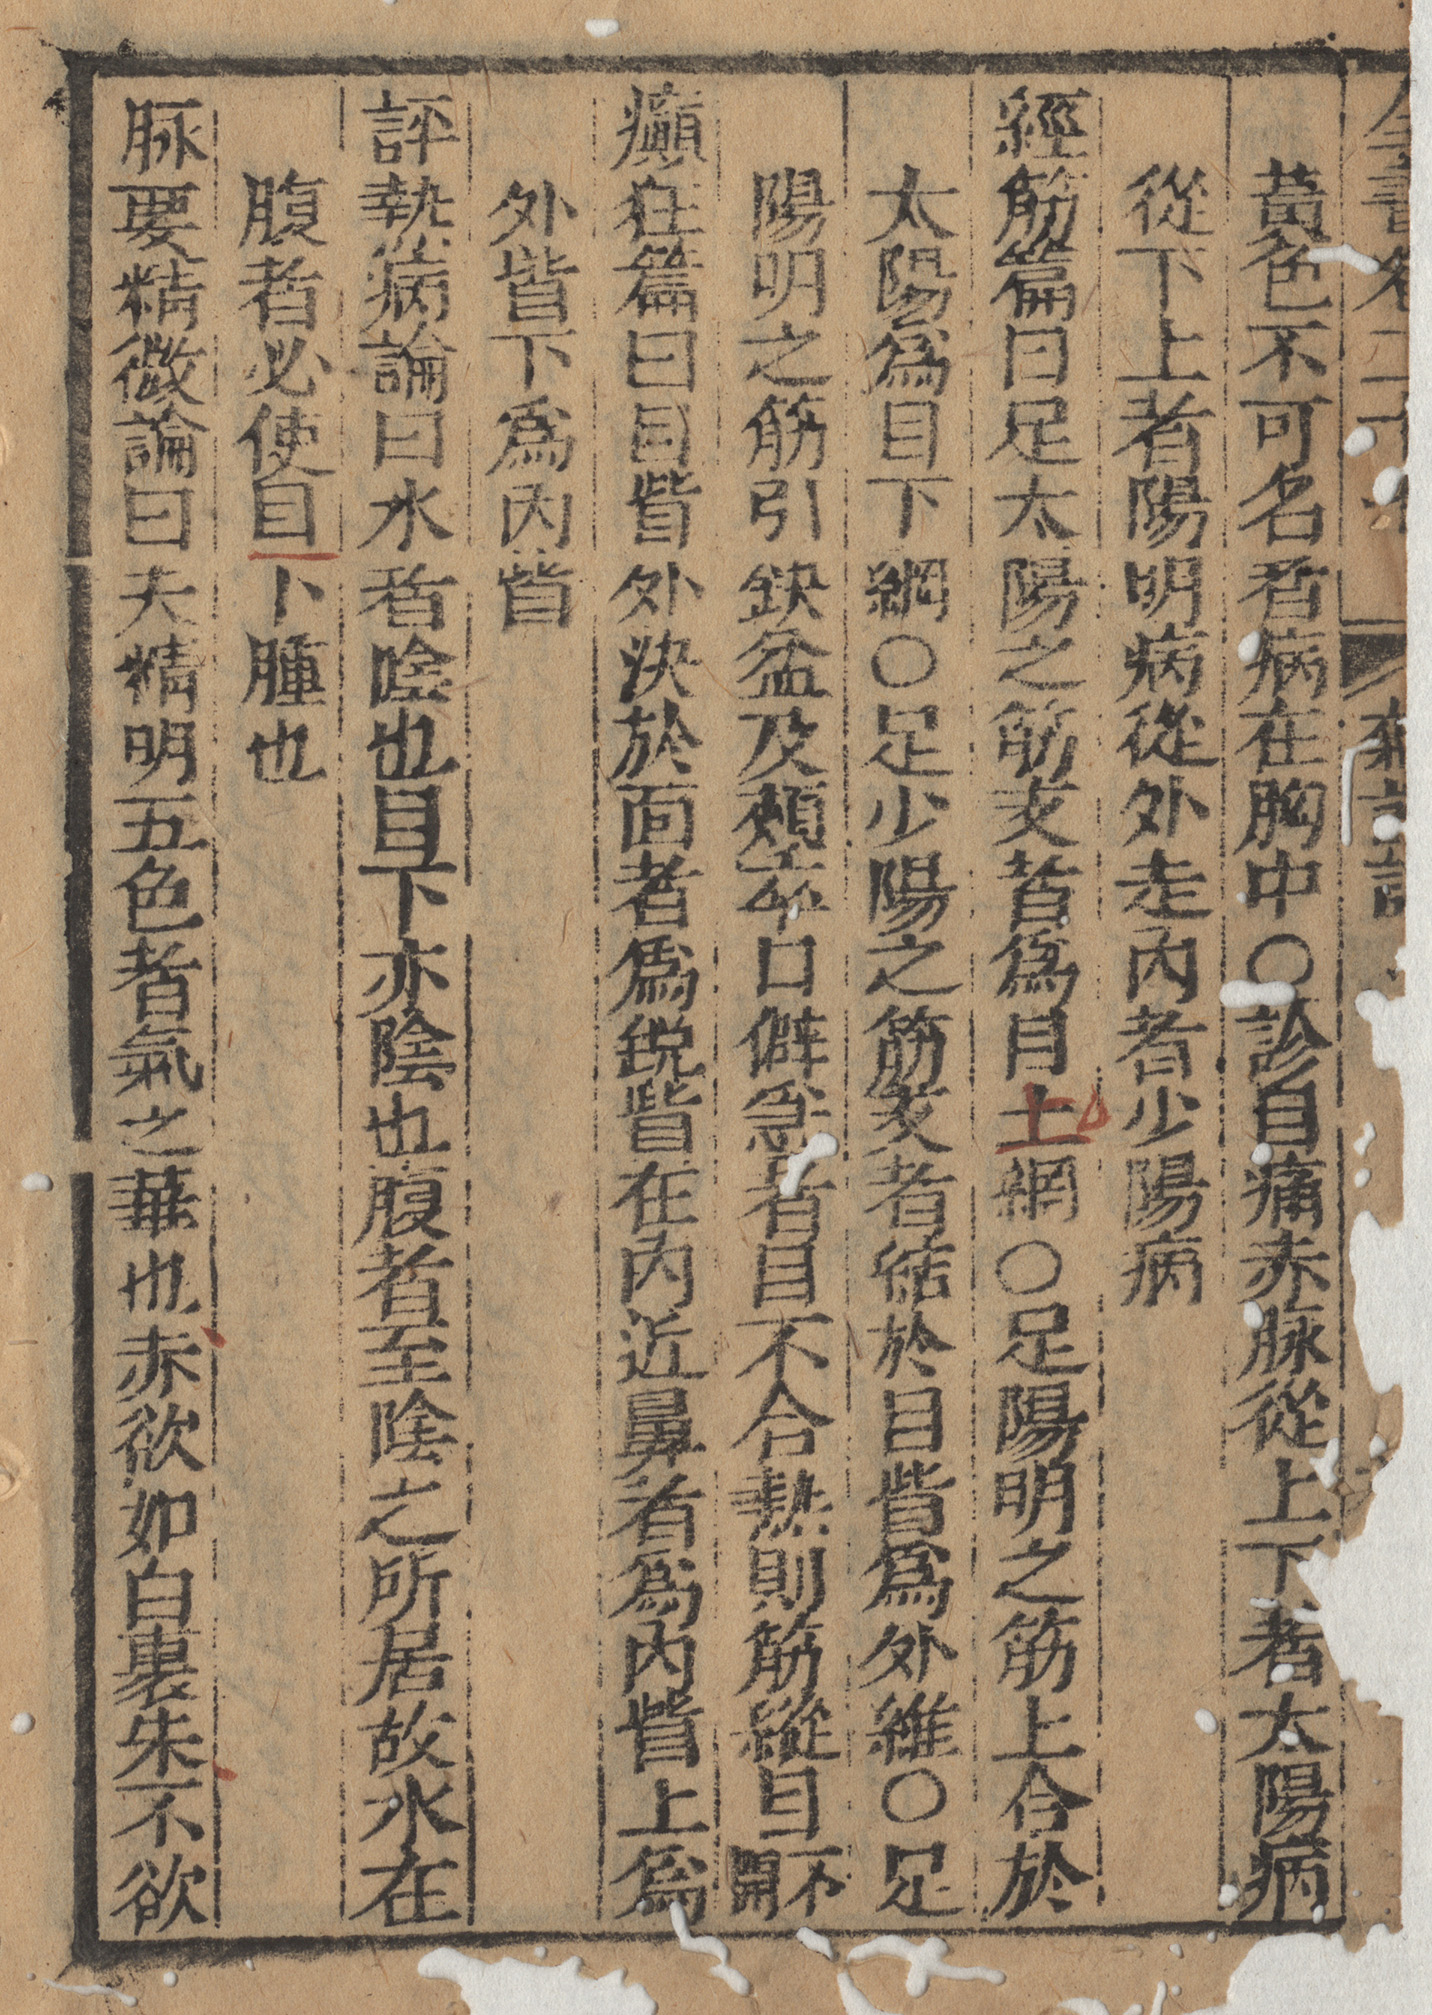 黃色不可名者病在胸中○診目痛赤脉從上下者太陽病
從下上者陽明病從外走內者少陽病
經筋篇曰足太陽之筋支者爲目上網○足陽明之筋上合於
太陽爲目下網○足少陽之筋支者結於目眥爲外維○足
陽明之筋引缺盆及頰卒口僻急者目不合熱則筋縱目不開
癲狂篇曰目眥外決於面者爲銳眥在內近鼻者爲內眥上爲
外眥下爲內眥
評熱病論曰水者陰也目下亦陰也腹者至陰之所居故水在
腹者必使目下腫也
脉要精微論曰夫精明五色者氣之華也赤欲如白裹朱不欲